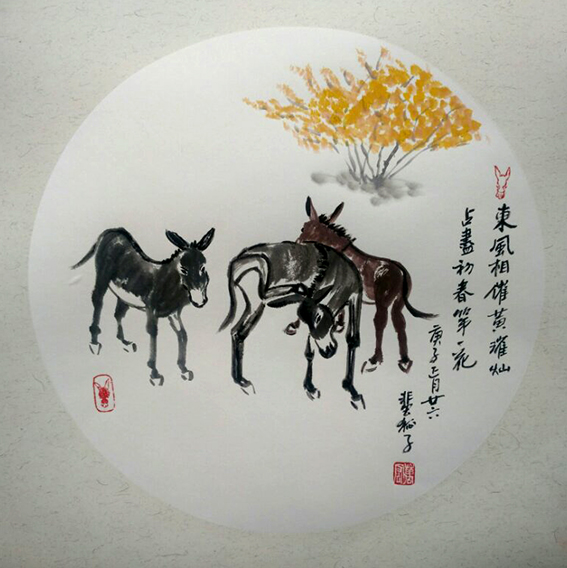 東風相催黄璀灿
占盡初春第一花
庚子正月廿六
子